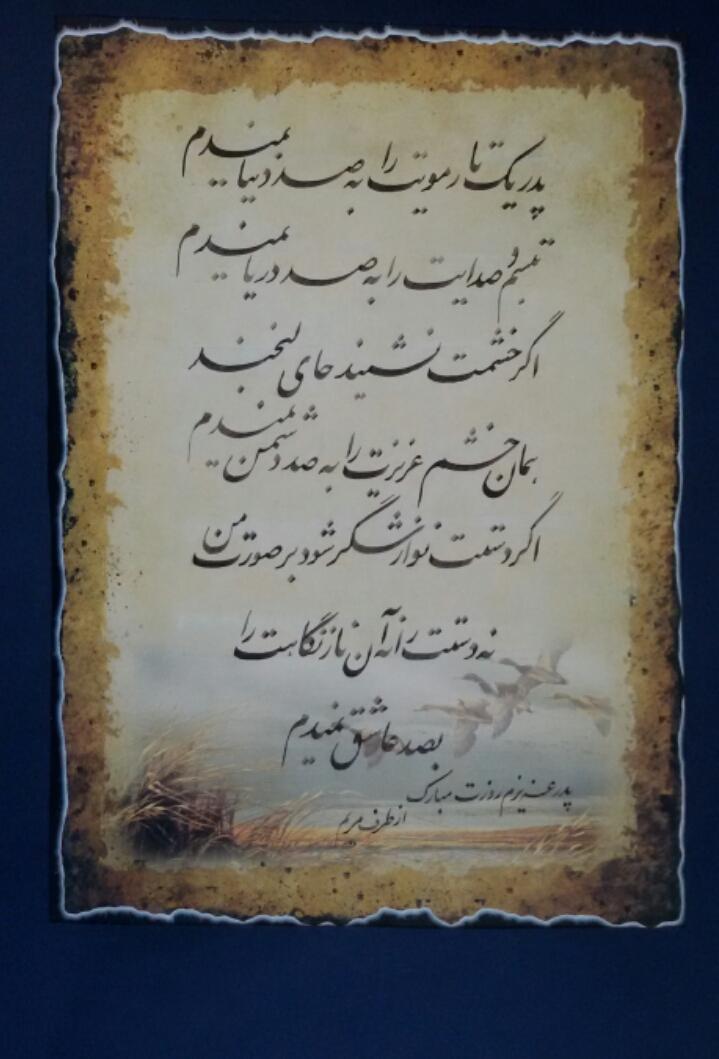 پدر یک تار مویت را به صد دنیا نمیدم
تبسم و صدایت را به صد دریا نمیدم
اگر خشمت نشیند جای لبخند
همان خشم عزیزت را به صد دشمن نمیدم
اگر دستت نوازشگر شود بر صورت من
نه دستت را نه آن ناز نگاهت را
بصد عاشق نمیدم
پدر عزیزم روزت مبارک
از طرف مریم